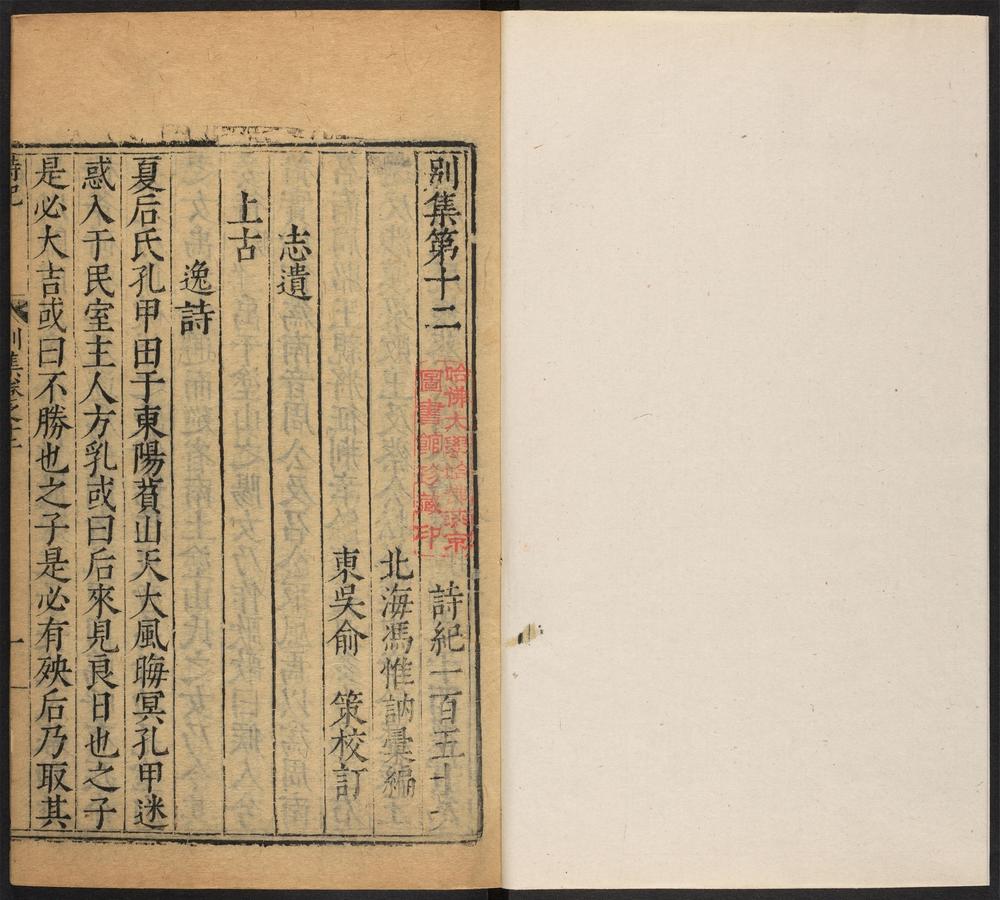 別集第十二　詩紀一百五十
北海馮惟訥彙編
東吳俞　策校訂
志遺
上古
逸詩
夏后氏孔甲田于東陽萯山天大風晦冥孔甲迷
惑入于民室主人方乳或曰后來見良日也之子
是必大吉或曰不勝也之子是必有殃后乃取其
詩紀　別集卷之十　一
哈佛大學哈佛燕京
圖書館珍藏印